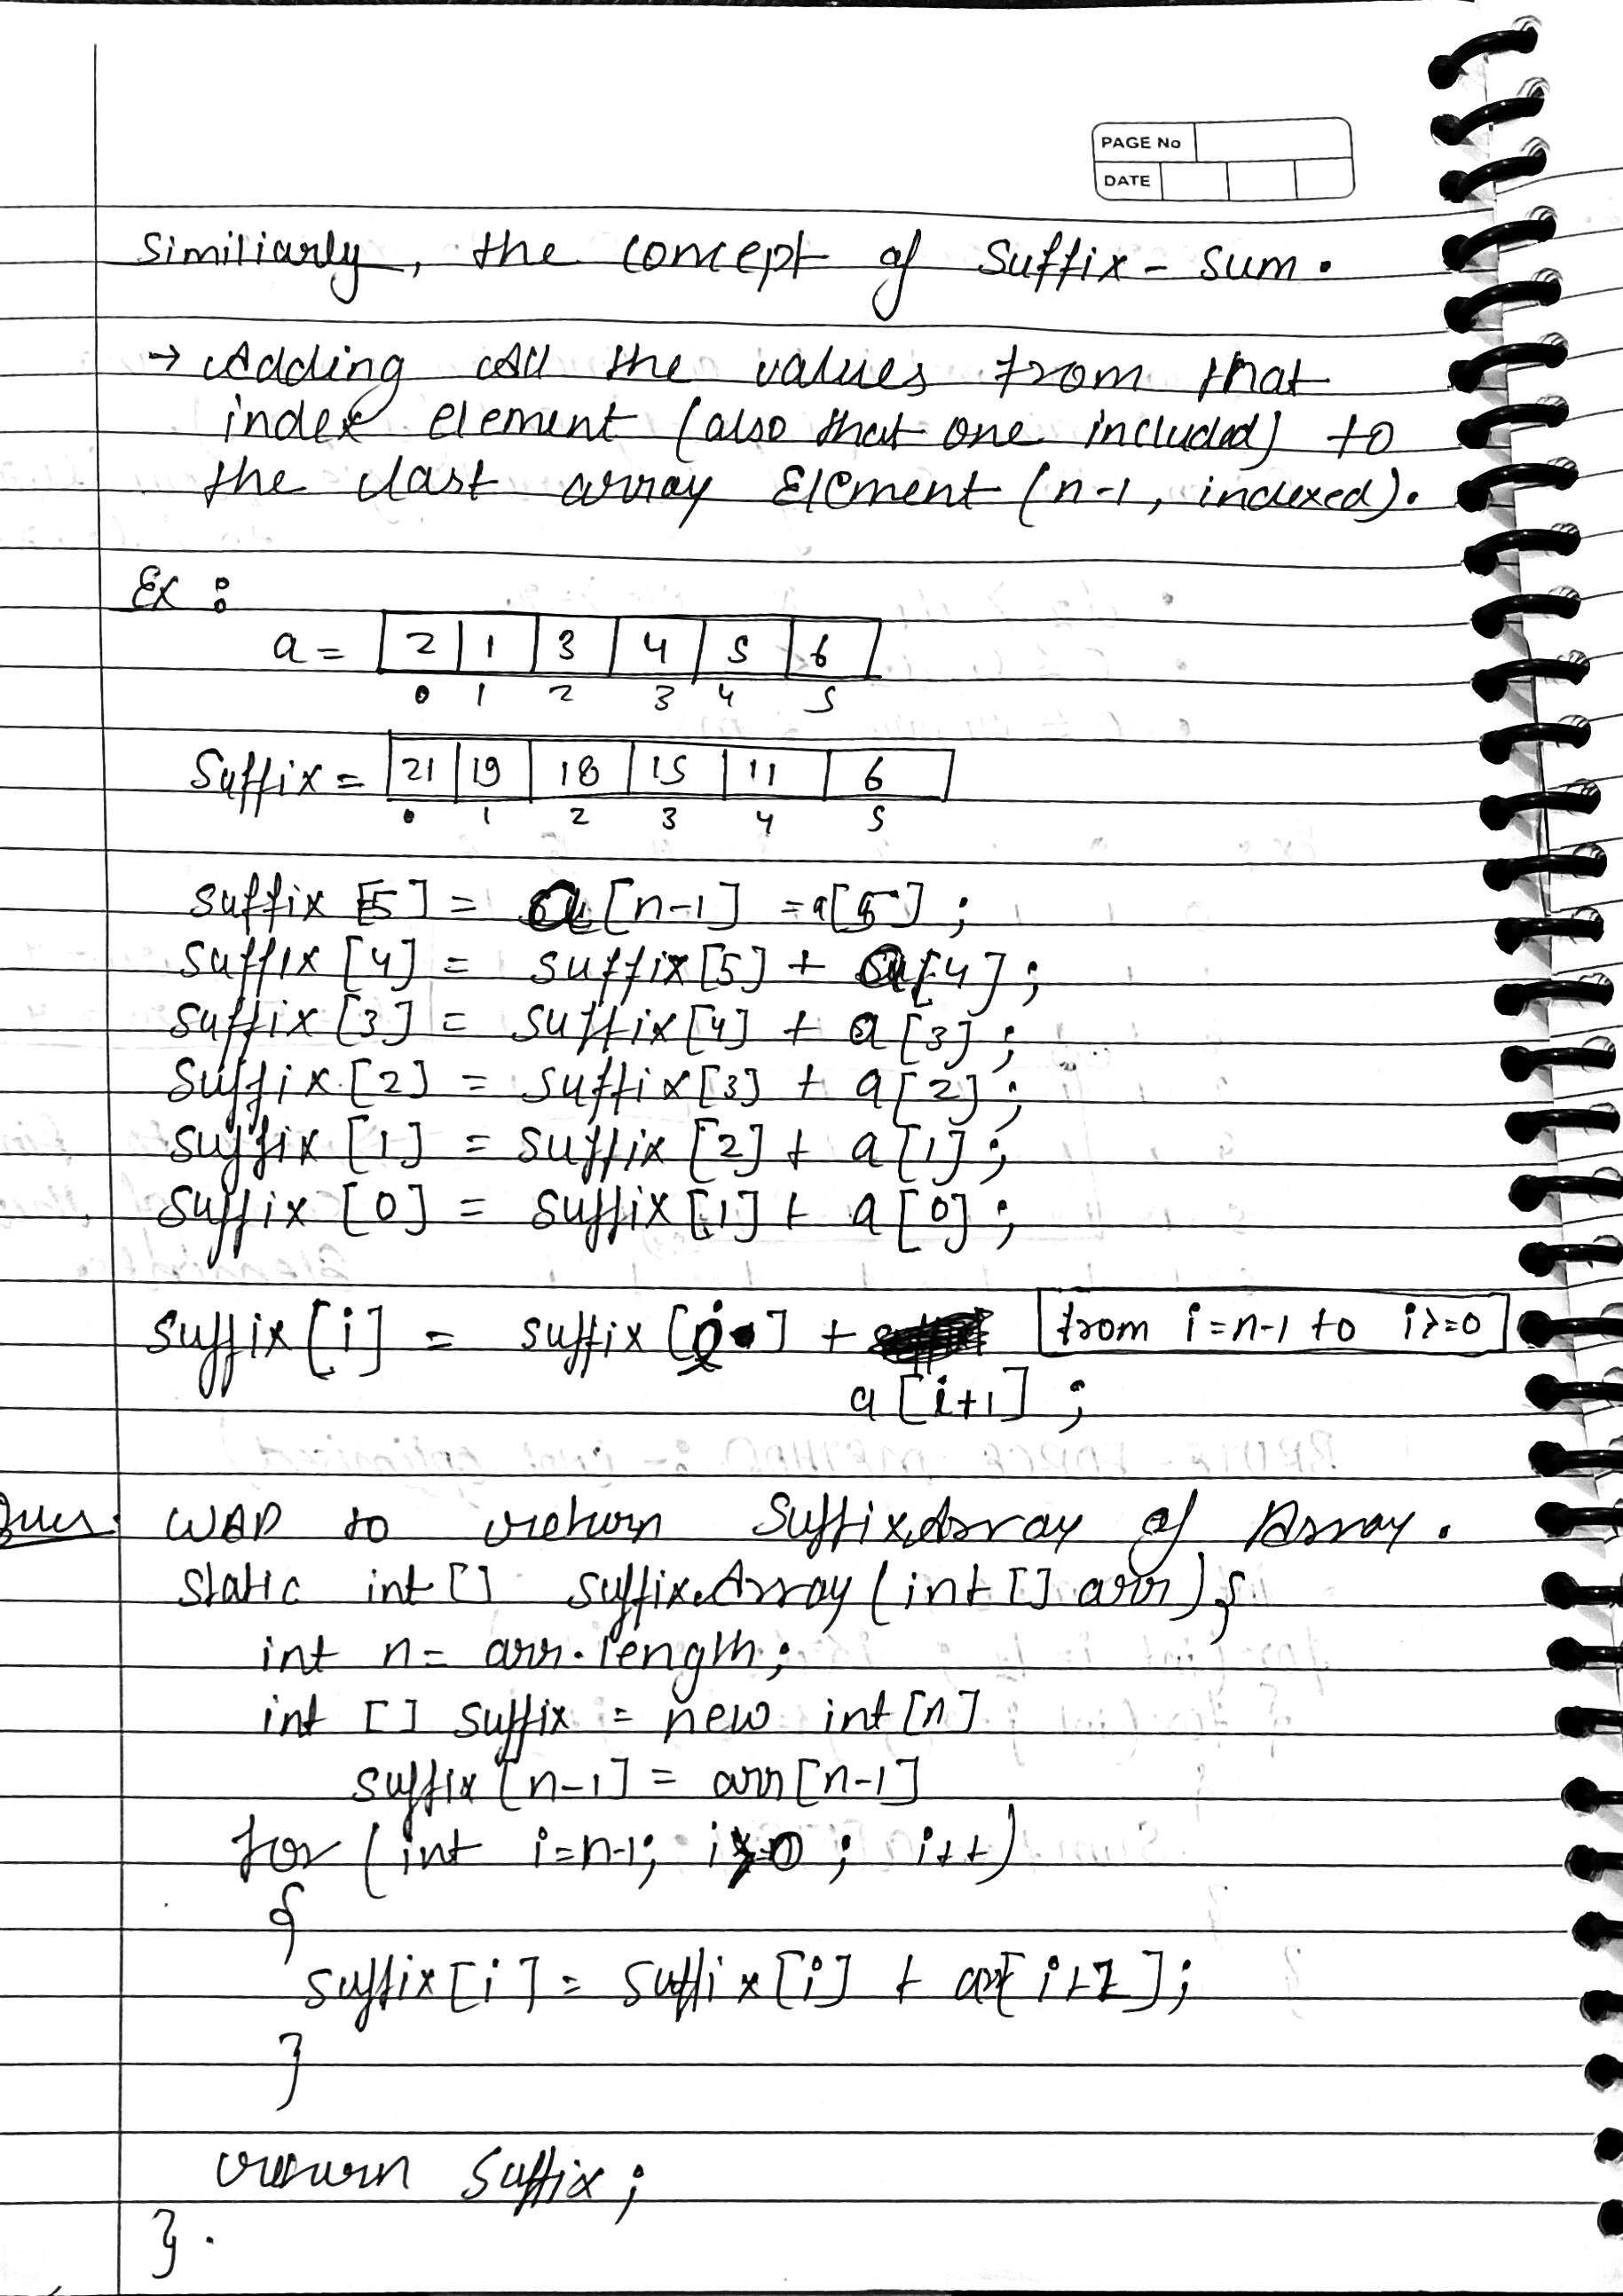 PAGE No
DATE
Similiarly, the concept of Suffix - sum.
→ Adding all the values from that
index element (also that one included) to
the last array Element (n-1, indexed).
Ex :
a = 2 1 3 4 5 6
0 1 2 3 4 5
Suffix = 21 19 18 15 11 6
0 1 2 3 4 5
suffix [5] = a[n-1] = a[5] ;
suffix [4] = suffix[5] + a[4] ;
suffix [3] = suffix[4] + a[3] ;
suffix [2] = suffix[3] + a[2] ;
suffix [1] = suffix [2] + a[1] ;
suffix [0] = suffix [1] + a[0] ;
suffix [i] = suffix [i] + from i = n-1 to i>=0
a [i+1] ;
Ques. WAP to return SuffixArray of Array.
static int [] suffixArray (int [] arr) {
int n = arr.length ;
int [] suffix = new int [n]
suffix [n-1] = arr [n-1]
for (int i = n-1; i>=0 ; i++)
{
suffix [i] = suffix [i] + arr[i+1] ;
}
return suffix ;
} .